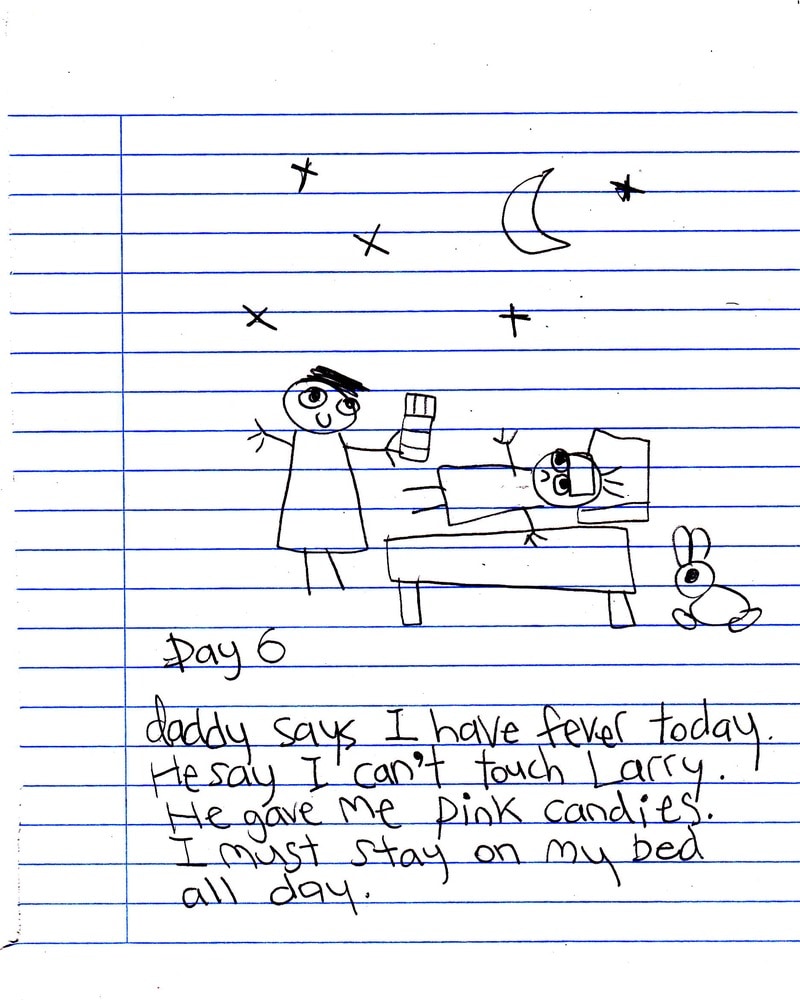 Day 6
daddy says I have fever today.
He say I can't touch Larry.
He gave me pink candies.
I must stay on my bed
all day.